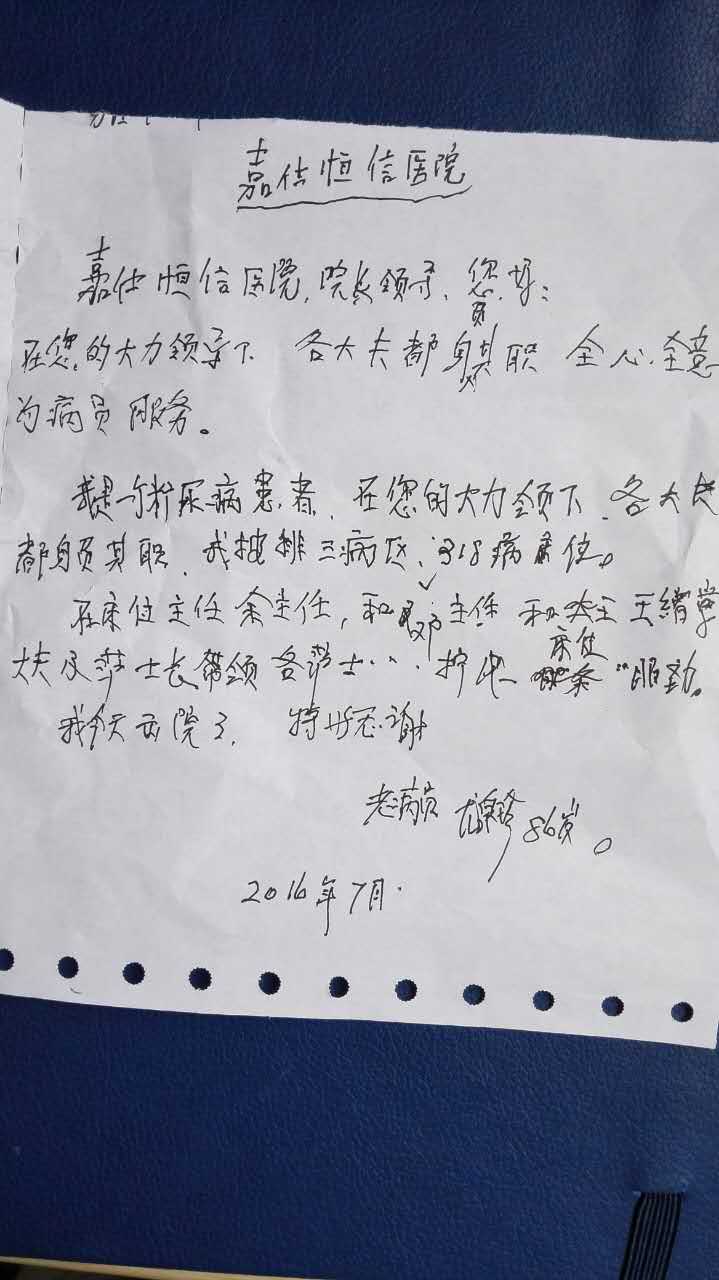 嘉仕恒信医院
嘉仕恒信医院,院长领导、您好:
在您的大力领导下 各大夫都负其职 全心全意
为病员服务。
我是一个糖尿病患者、在您的大力领下、各大夫
都负其职、我按排三病区、318病床位。
在床位主任 余主任,和邓主任 和 王
大夫及护士长带领各护士…
我今天出院了、特此感谢
老病员 86岁。
2016年7月.